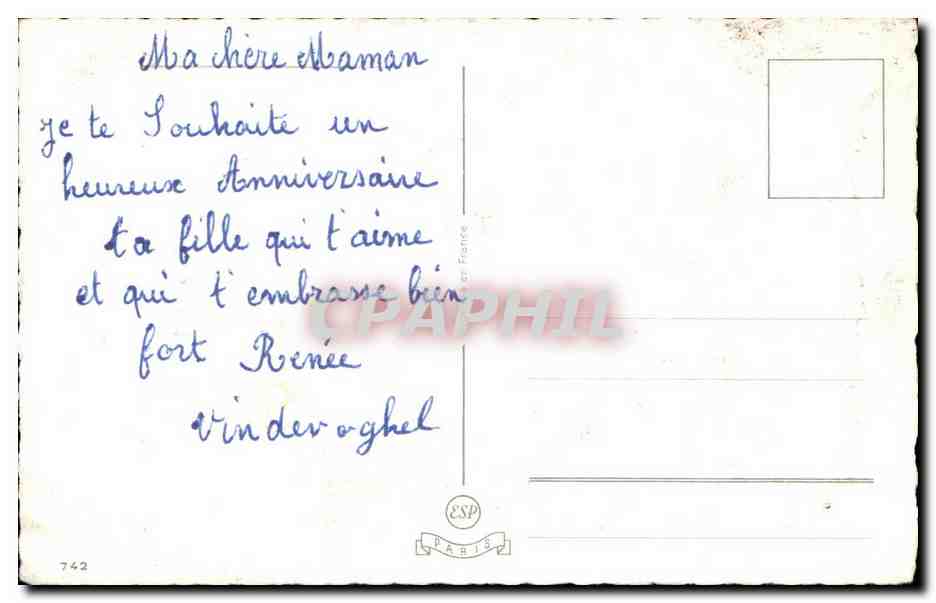 Ma chère Maman
je te Souhaite un
heureux Anniversaire
ta fille qui t'aime
et qui t'embrasse bien
fort Renée
Vindevoghel
France
CPAPHIL
ESP
PARIS
742